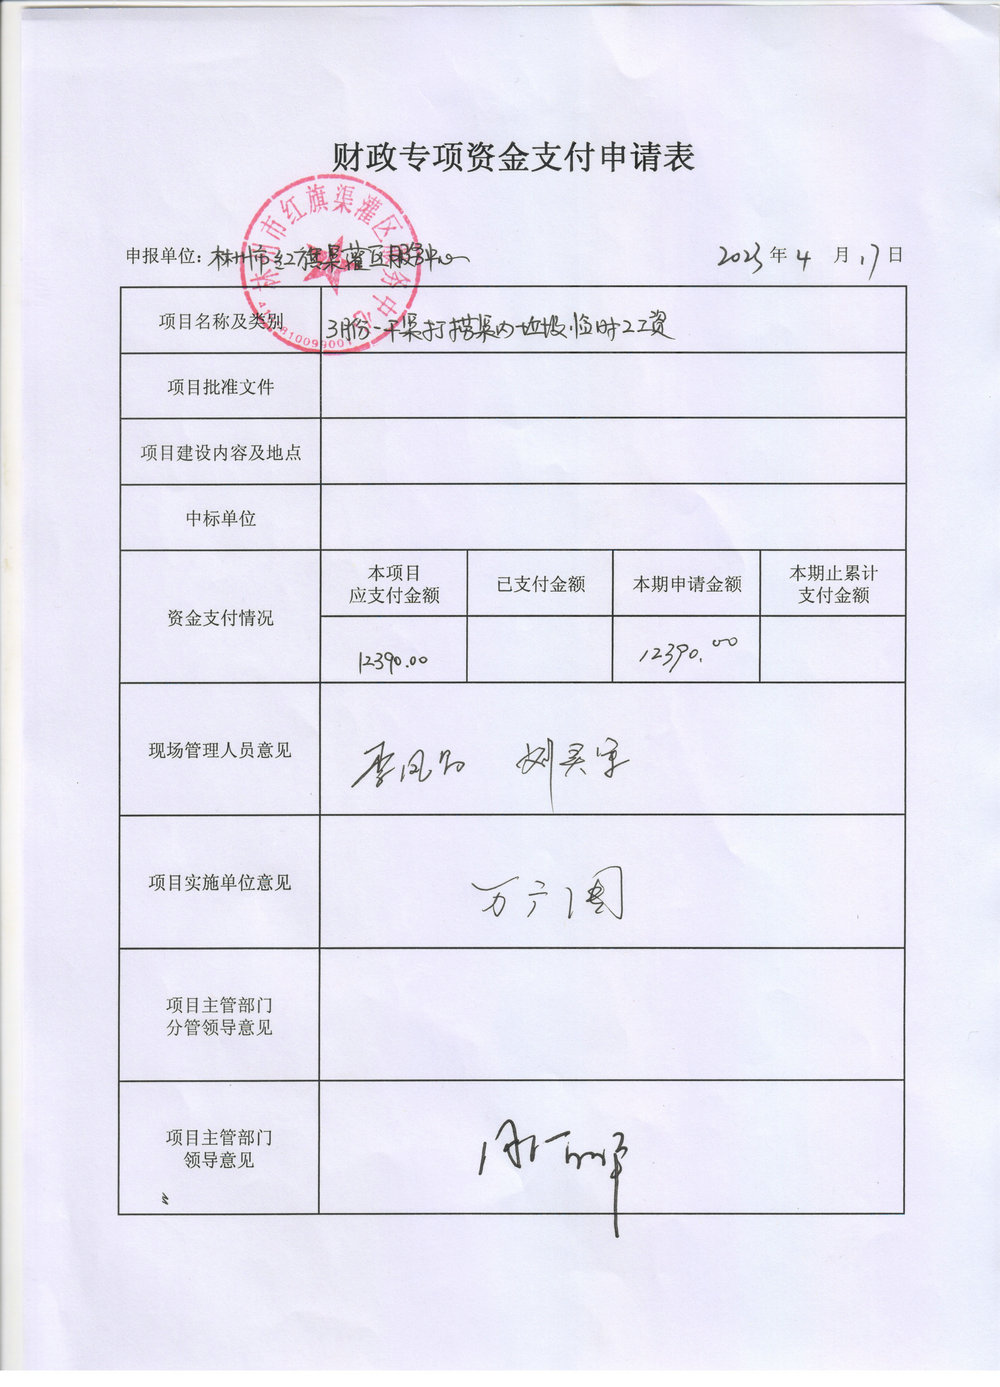 财政专项资金支付申请表
林州市红旗渠灌区服务中心
4105810099001
申报单位: 林州市红旗渠灌区服务中心 2023 年 4 月 17 日
项目名称及类别 3月份一干渠打捞渠内垃圾临时工工资
项目批准文件
项目建设内容及地点
中标单位
资金支付情况
本项目
应支付金额
已支付金额
本期申请金额
本期止累计
支付金额
12390.00
12390.00
现场管理人员意见
项目实施单位意见
项目主管部门
分管领导意见
项目主管部门
领导意见